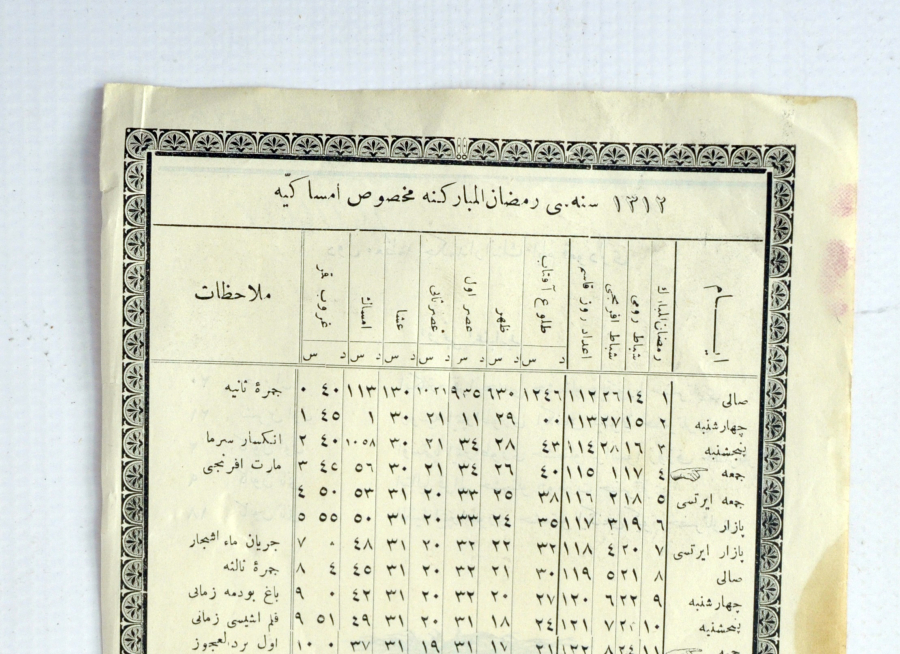 ١٣١٢ سنه‌سی رمضان المباركنه مخصوص امساكيّه
ايـــام رمضان المبارك شباط رومی شباط افرنجی اعداد روز قاسم طلوع آفتاب ظهر عصر اول عصر ثانی عشا امساك غروب قمر ملاحظات
د س د س د س د س د س د س د س
صالی ١ ١٤ ٢٦ ١١٢ ١٢٤٦ ٦٣٠ ٩٣٥ ١٠٢١ ١٣٠ ١١٣ ٤٠ ٠ جمرۀ ثانيه
چهارشنبه ٢ ١٥ ٢٧ ١١٣ ٠٠ ٢٩ ١١ ٢١ ٣٠ ١ ٤٥ ١
پنجشنبه ٣ ١٦ ٢٨ ١١٤ ٤٣ ٢٨ ٣٤ ٢١ ٣٠ ١٠٥٨ ٤٠ ٢ انكسار سرما
جمعه ٤ ١٧ ١ ١١٥ ٤٠ ٢٦ ٣٤ ٢١ ٣٠ ٥٦ ٤٥ ٣ مارت افرنجی
جمعه ايرتسی ٥ ١٨ ٢ ١١٦ ٣٨ ٢٥ ٣٣ ٢٠ ٣١ ٥٣ ٥٠ ٤
پازار ٦ ١٩ ٣ ١١٧ ٣٥ ٢٤ ٣٣ ٢٠ ٣١ ٥٠ ٥٥ ٥
پازار ايرتسی ٧ ٢٠ ٤ ١١٨ ٣٢ ٢٢ ٣٢ ٢٠ ٣١ ٤٨ ٠ ٧ جريان ماء اشجار
صالی ٨ ٢١ ٥ ١١٩ ٣٠ ٢١ ٣٢ ٢٠ ٣١ ٤٥ ٤ ٨ جمرۀ ثالثه
چهارشنبه ٩ ٢٢ ٦ ١٢٠ ٢٧ ٢٠ ٣٢ ٢٠ ٣١ ٤٢ ٠ ٩ باغ بودمه زمانی
پنجشنبه ١٠ ٧ ١٢١ ٢٤ ١٨ ٣١ ٢٠ ٣١ ٤٩ ٥١ ٩ قلم اشيسی زمانی
١١ ٢٤ ٨ ٢١ ١٧ ٣١ ١٩ ٣١ ٣٧ ٠ ١٠ اول بردالعجوز